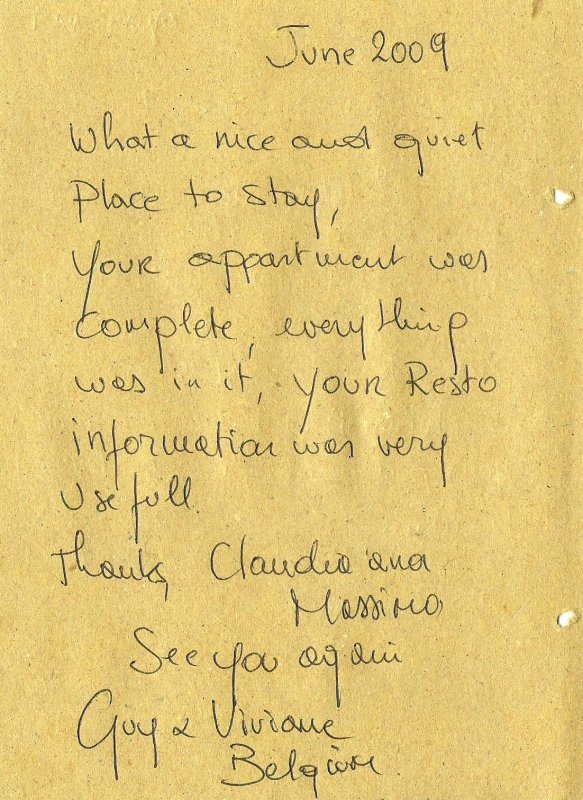 June 2009
What a nice and quiet
Place to stay,
Your appartment was
complete, everything
was in it, your Resto
information was very
Usefull.
Thanks Claudia and
Massimo
See you again
Guy & Viviane
Belgium